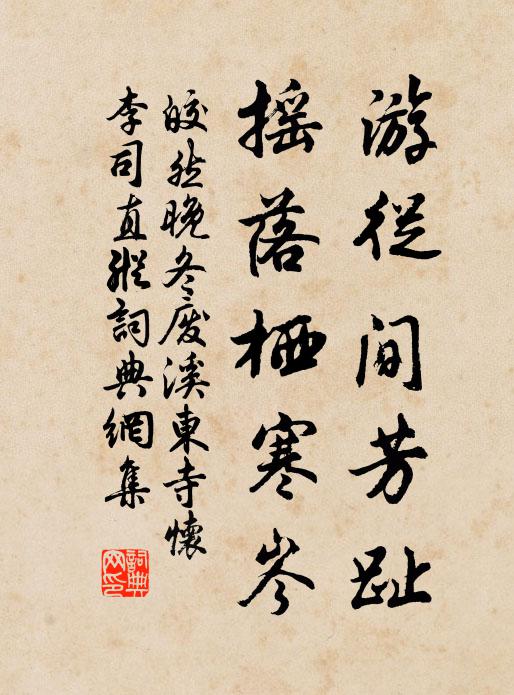 游從間芳趾
搖落栖寒岑
皎然晚冬廢溪東寺懷
李司直縱詞典網集
詞典
网印